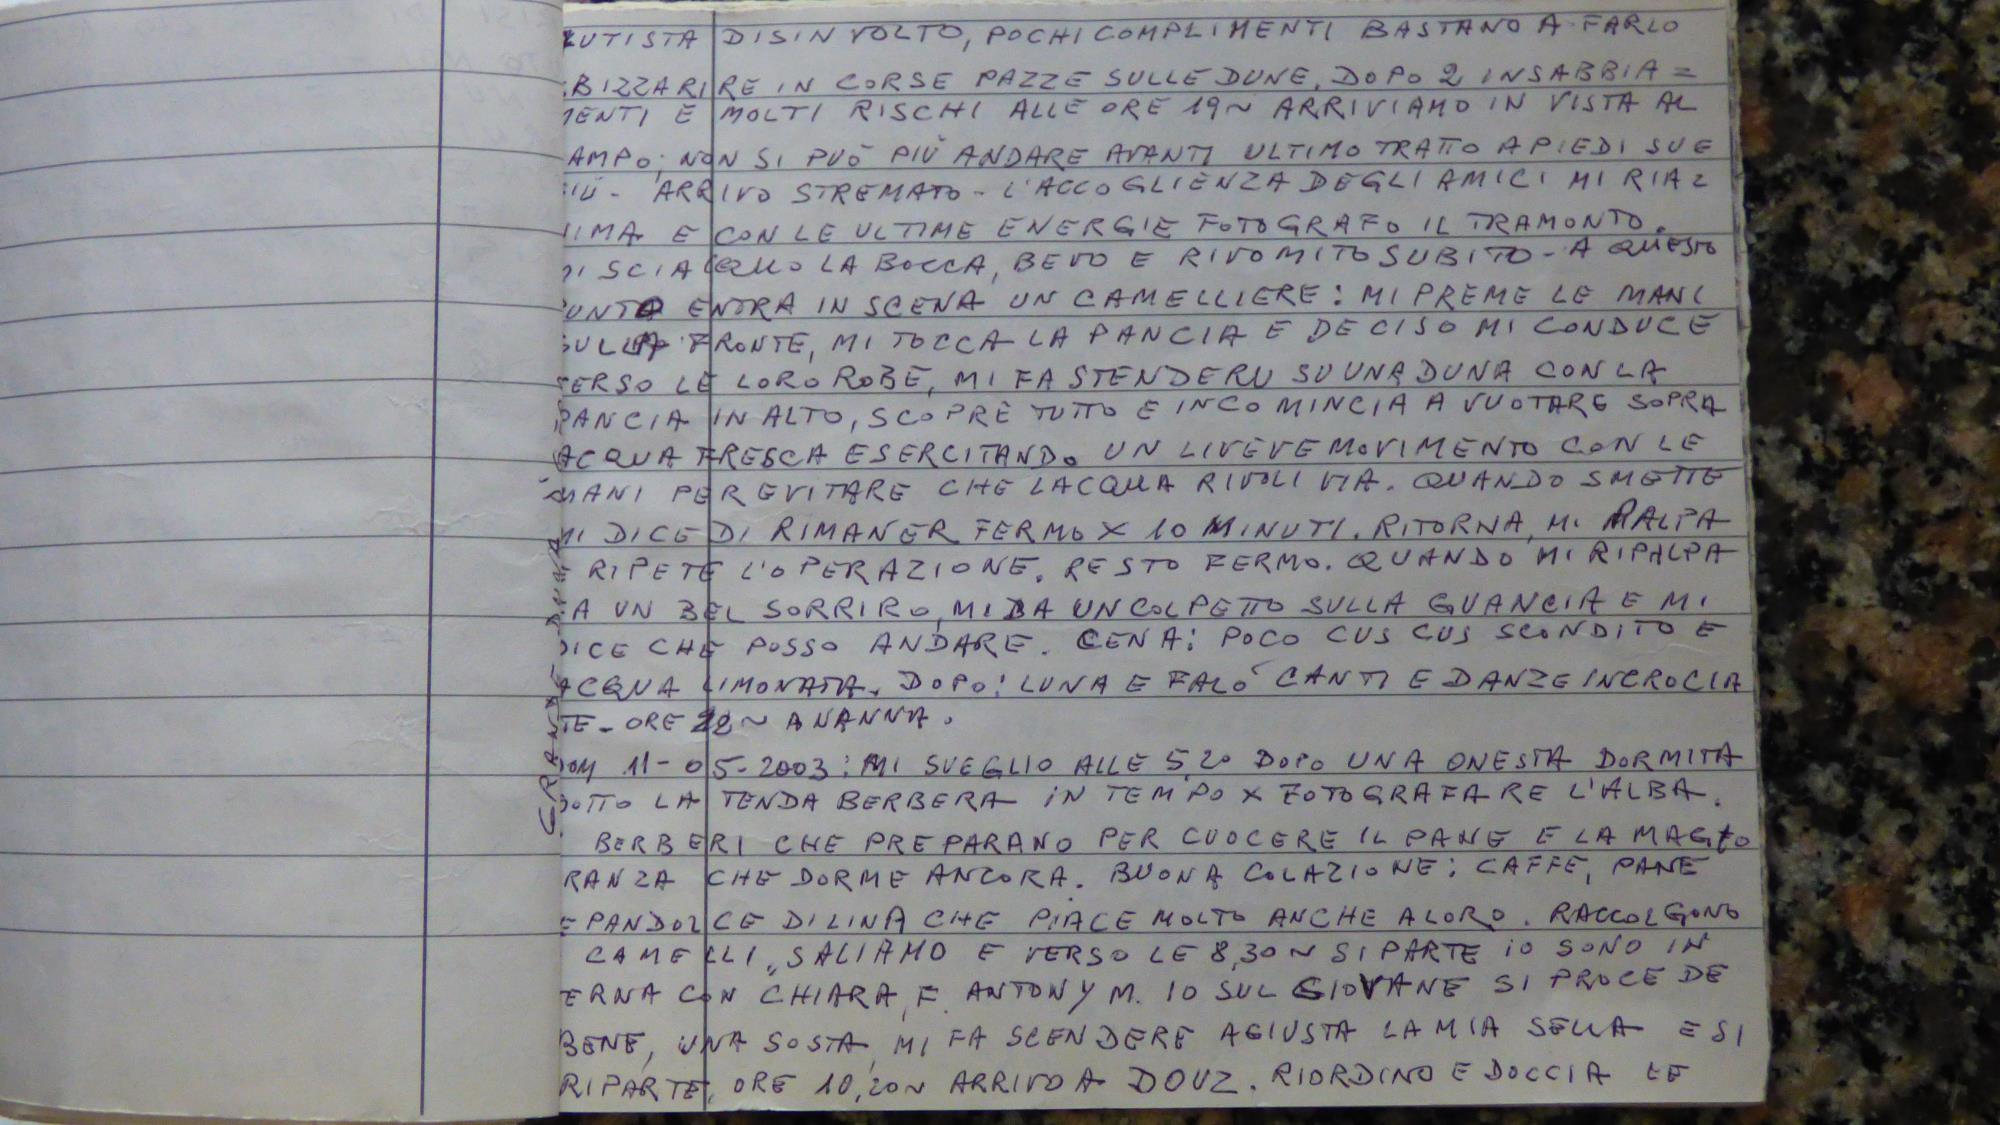 UTISTA DISINVOLTO, POCHI COMPLIMENTI BASTANO A FARLO
BIZZARIRE IN CORSE PAZZE SULLE DUNE. DOPO 2 INSABBIA=
MENTI E MOLTI RISCHI ALLE ORE 19~ ARRIVIAMO IN VISTA AL
AMPO; NON SI PUÒ PIÙ ANDARE AVANTI ULTIMO TRATTO A PIEDI SU E
GIÙ - ARRIVO STREMATO - L'ACCOGLIENZA DEGLI AMICI MI RIA=
NIMA E CON LE ULTIME ENERGIE FOTOGRAFO IL TRAMONTO.
MI SCIACQUO LA BOCCA, BEVO E RIVOMITO SUBITO - A QUESTO
PUNTO ENTRA IN SCENA UN CAMELLIERE: MI PREME LE MANI
SULLA FRONTE, MI TOCCA LA PANCIA E DECISO MI CONDUCE
VERSO LE LORO ROBE, MI FA STENDERE SU UNA DUNA CON LA
PANCIA IN ALTO, SCOPRE TUTTO E INCOMINCIA A VUOTARE SOPRA
ACQUA FRESCA ESERCITANDO UN LIVEVE MOVIMENTO CON LE
MANI PER EVITARE CHE LACQUA RIVOLI VIA. QUANDO SMETTE
MI DICE DI RIMANER FERMO X 10 MINUTI. RITORNA, MI PALPA
RIPETE L'OPERAZIONE. RESTO FERMO. QUANDO MI RIPALPA
A UN BEL SORRIRO, MI DA UN COLPETTO SULLA GUANCIA E MI
DICE CHE POSSO ANDARE. CENA: POCO CUS CUS SCONDITO E
ACQUA LIMONATA. DOPO: LUNA E FALÒ CANTI E DANZE INCROCIA
TE - ORE 22~ A NANNA.
DOM 11-05-2003: MI SVEGLIO ALLE 5,20 DOPO UNA ONESTA DORMITA
SOTTO LA TENDA BERBERA IN TEMPO X FOTOGRAFARE L'ALBA.
BERBERI CHE PREPARANO PER CUOCERE IL PANE E LA MAGGIO
RANZA CHE DORME ANCORA. BUONA COLAZIONE: CAFFE, PANE
E PANDOLCE DI LINA CHE PIACE MOLTO ANCHE A LORO. RACCOLGONO
CAMELLI, SALIAMO E VERSO LE 8,30~ SI PARTE IO SONO IN
ERNA CON CHIARA, F. ANTONY M. IO SUL GIOVANE SI PROCEDE
BENE, UNA SOSTA, MI FA SCENDERE AGIUSTA LA MIA SELLA E SI
RIPARTE, ORE 10,20~ ARRIVO A DOUZ. RIORDINO E DOCCIA LE
GRANDE DUNA